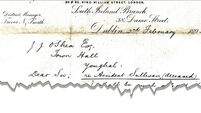 29 & 30, KING WILLIAM STREET, LONDON.
South Ireland Branch,
District Manager,
38, Dame Street,
Dublin 2nd February 189
J. J. O'Shea Esq.
Town Hall
Youghal.
Dear Sir, re Accident Sullivan (deceased)